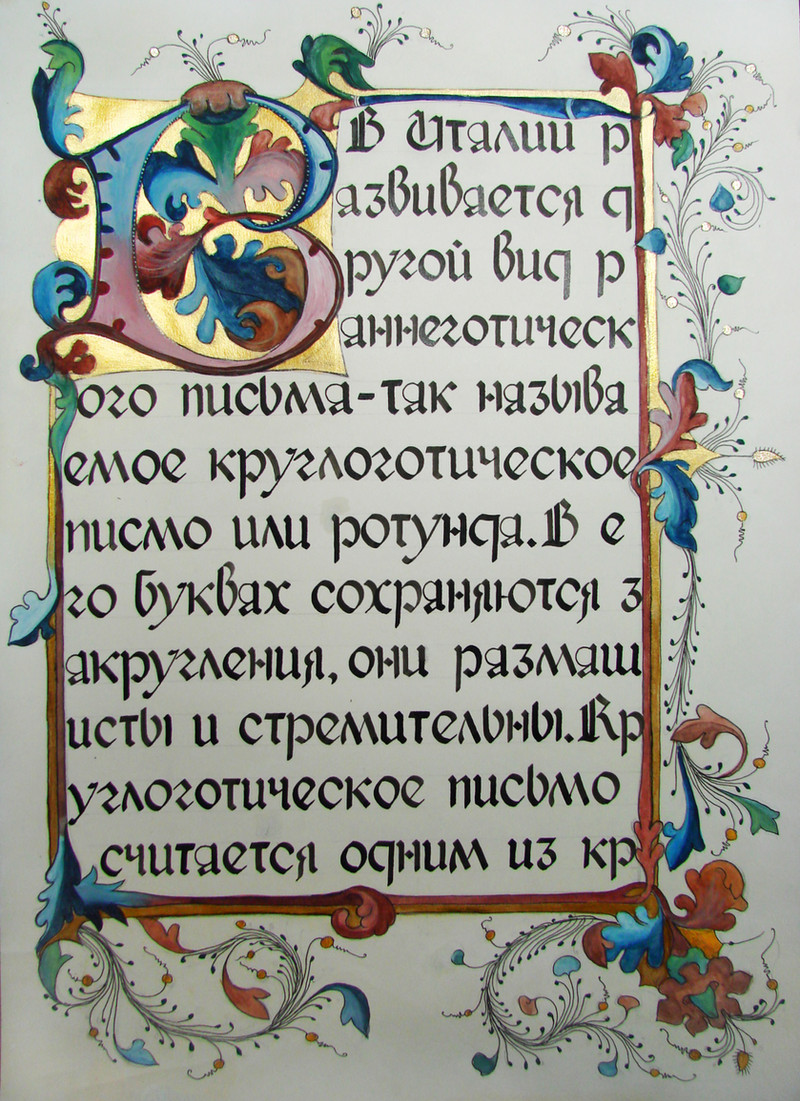 В Италии р
азвивается д
ругой вид р
аннеготическ
ого письма-так называ
емое круглоготическое
писмо или ротунда. В е
го буквах сохраняются з
акругления, они размаш
исты и стремительны. Кр
углоготическое письмо
считается одним из кр